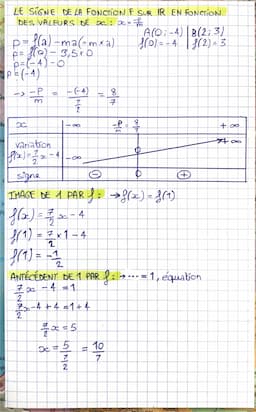 LE SIGNE DE LA FONCTION F SUR IR EN FONCTION
DES VALEURS DE x :
A(0; -4) B(2; 3)
p = f(a) - ma (= m × a) f(0) = -4 f(2) = 3
p = f(a) - 3,5 × 0
p = (-4) - 0
p = (-4)
→ -p/m = -(-4)/(7/2) = 8/7
x -∞ -p/m = 8/7 +∞
variation f(x) = 7/2 x - 4 -∞ 0 +∞
signe ⊖ 0 ⊕
IMAGE DE 1 PAR f : → f(x) = f(1)
f(x) = 7/2 x - 4
f(1) = 7/2 × 1 - 4
f(1) = -1/2
ANTÉCÉDENT DE 1 PAR f : → ... = 1, équation
7/2 x - 4 = 1
7/2 x - 4 + 4 = 1 + 4
7/2 x = 5
x = 5/(7/2) = 10/7